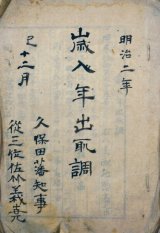 明治二年
歳入年出取調
巳十二月
久保田藩知事
從三位佐竹義堯